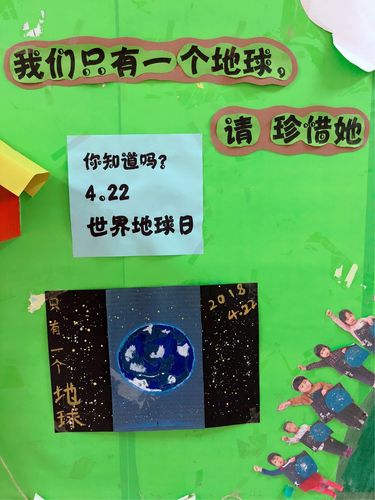 我们只有一个地球,
请 珍惜她
你知道吗?
4.22
世界地球日
只有一个地球
2018
4.22